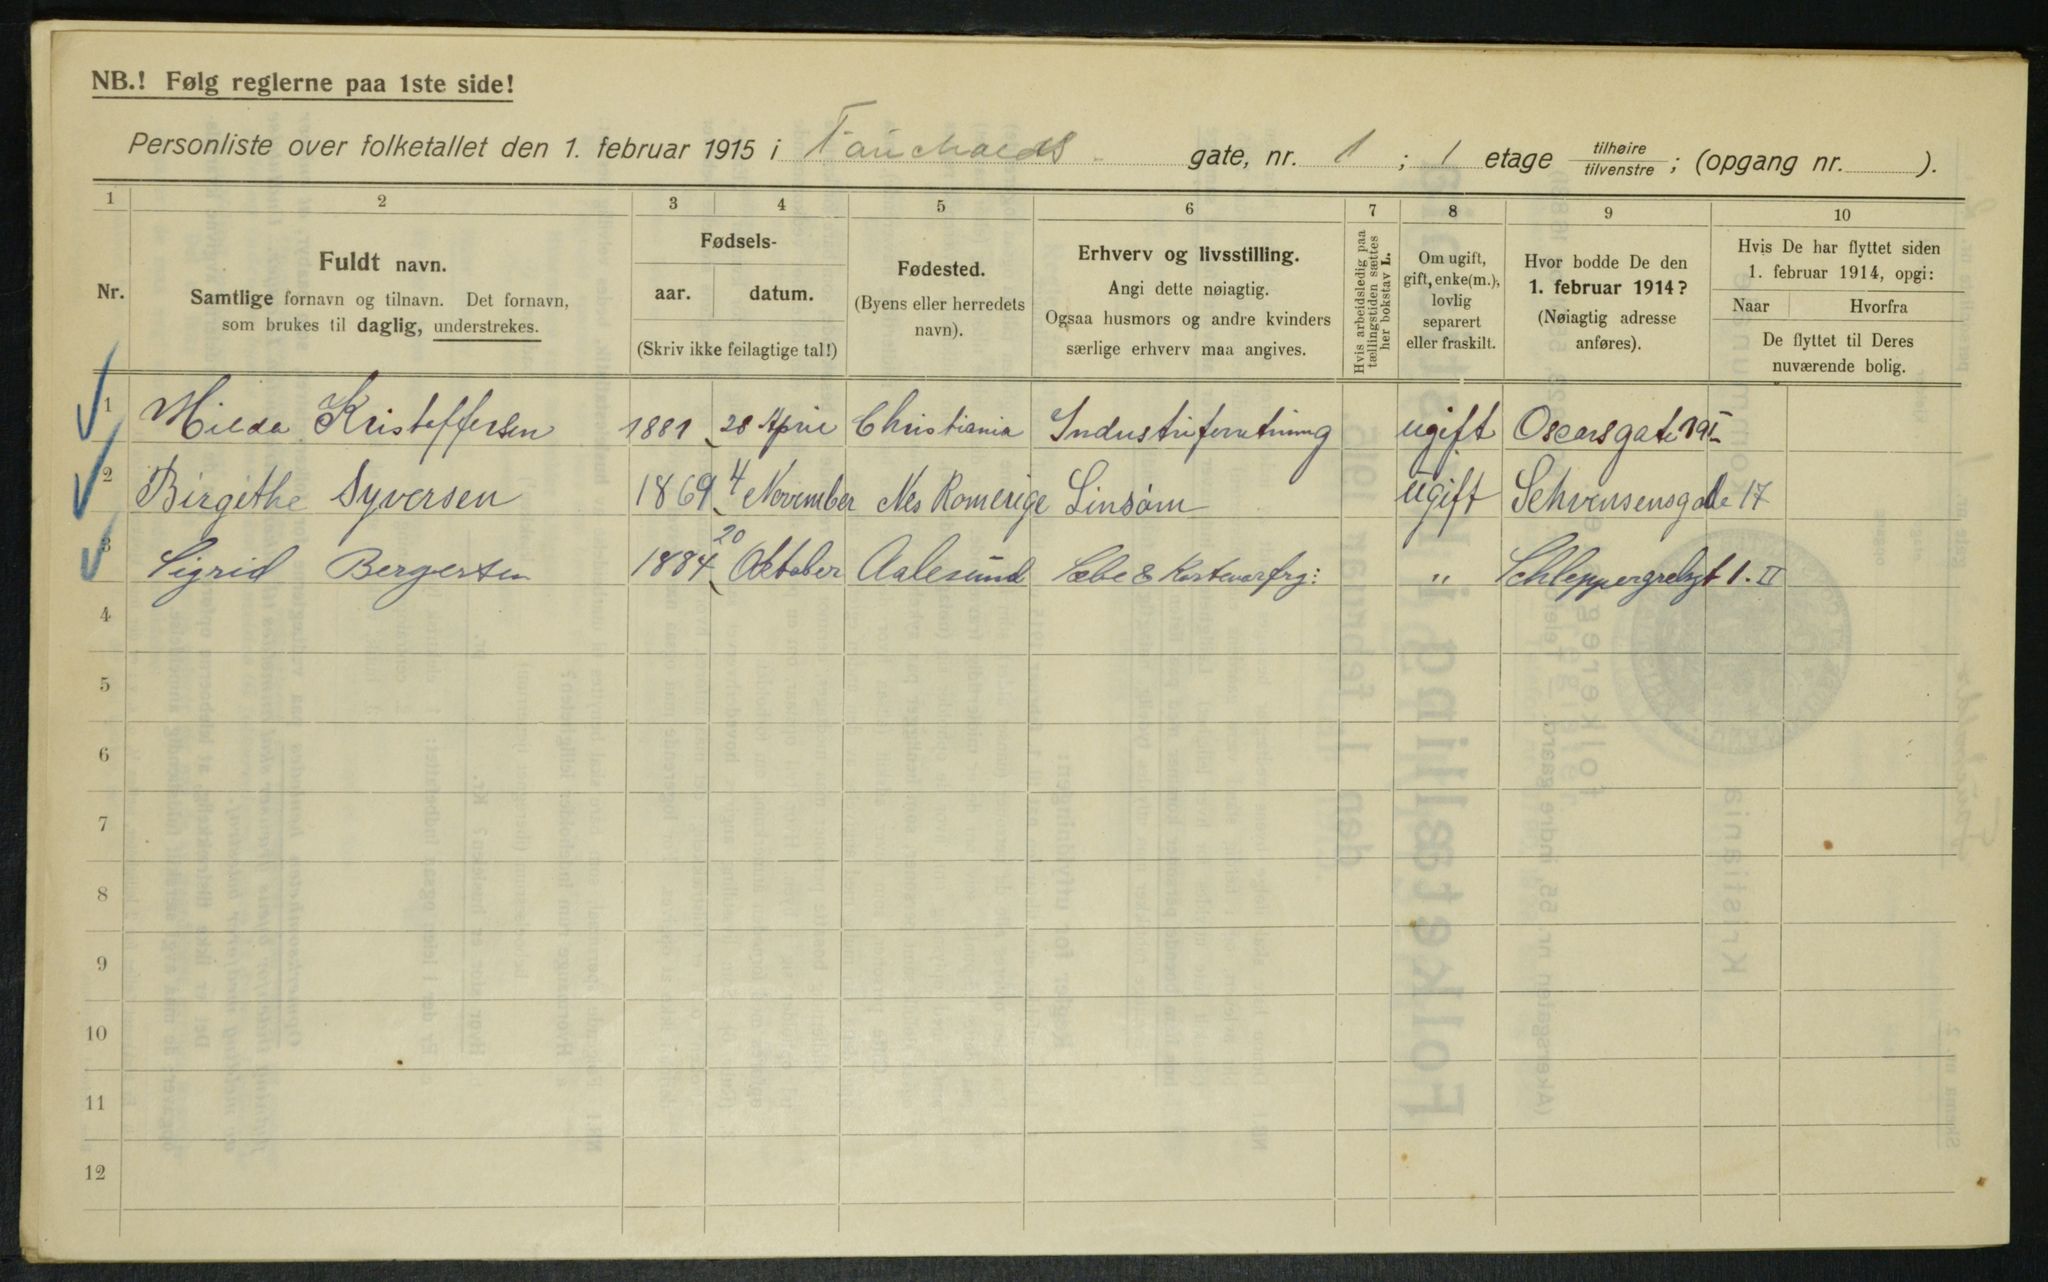 NB.! Følg reglerne paa 1ste side!
Personliste over folketallet den 1. februar 1915 i Fauchalds gate, nr. 1 ; 1 etage tilhøire tilvenstre ; (opgang nr. ).
1 2 3 4 5 6 7 8 9 10
Nr.
Fuldt navn.
Samtlige fornavn og tilnavn. Det fornavn,
som brukes til daglig, understrekes.
Fødsels-
aar. datum.
(Skriv ikke feilagtige tal!)
Fødested.
(Byens eller herredets
navn).
Erhverv og livsstilling.
Angi dette nøiagtig.
Ogsaa husmors og andre kvinders
særlige erhverv maa angives.
Hvis arbeidsledig paa
tællingstiden sættes
her bokstav L.
Om ugift,
gift, enke(m.),
lovlig
separert
eller fraskilt.
Hvor bodde De den
1. februar 1914?
(Nøiagtig adresse
anføres).
Hvis De har flyttet siden
1. februar 1914, opgi:
Naar Hvorfra
De flyttet til Deres
nuværende bolig.
1 Hilda Kristoffersen 1881 28 April Christiania Industriforretning ugift Oscarsgate
2 Birgithe Syversen 1869 4 November Nes Romerige Linsøm ugift Schvensensgade 17
3 Sigrid Bergersen 1884 20 Oktober Aalesund Sæbe & ugift „ Schleppergrelsgt 1. II
4
5
6
7
8
9
10
11
12